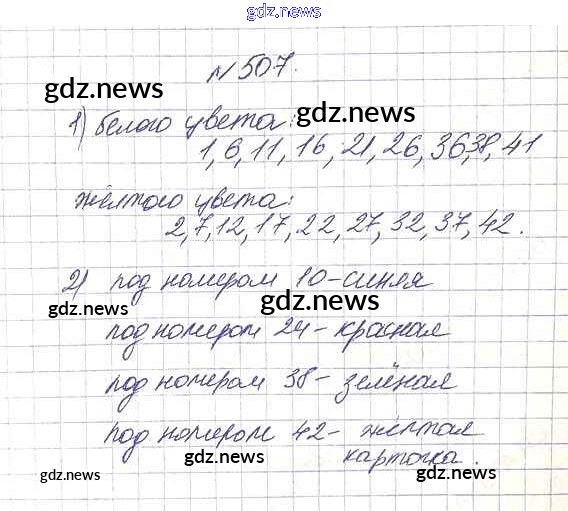 gdz.news
№507.
gdz.news gdz.news
1) белого цвета:
1, 6, 11, 16, 21, 26, 36, 38, 41
gdz.news gdz.news
жёлтого цвета:
2, 7, 12, 17, 22, 27, 32, 37, 42.
2) под номером 10-синяя
gdz.news gdz.news
под номером 24-красная
под номером 38-зелёная
gdz.news gdz.news
под номером 42-жёлтая
карточка.
gdz.news gdz.news gdz.news